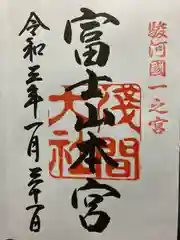 駿河國一之宮
富士山本宮
淺間大社
令和三年一月二十一日